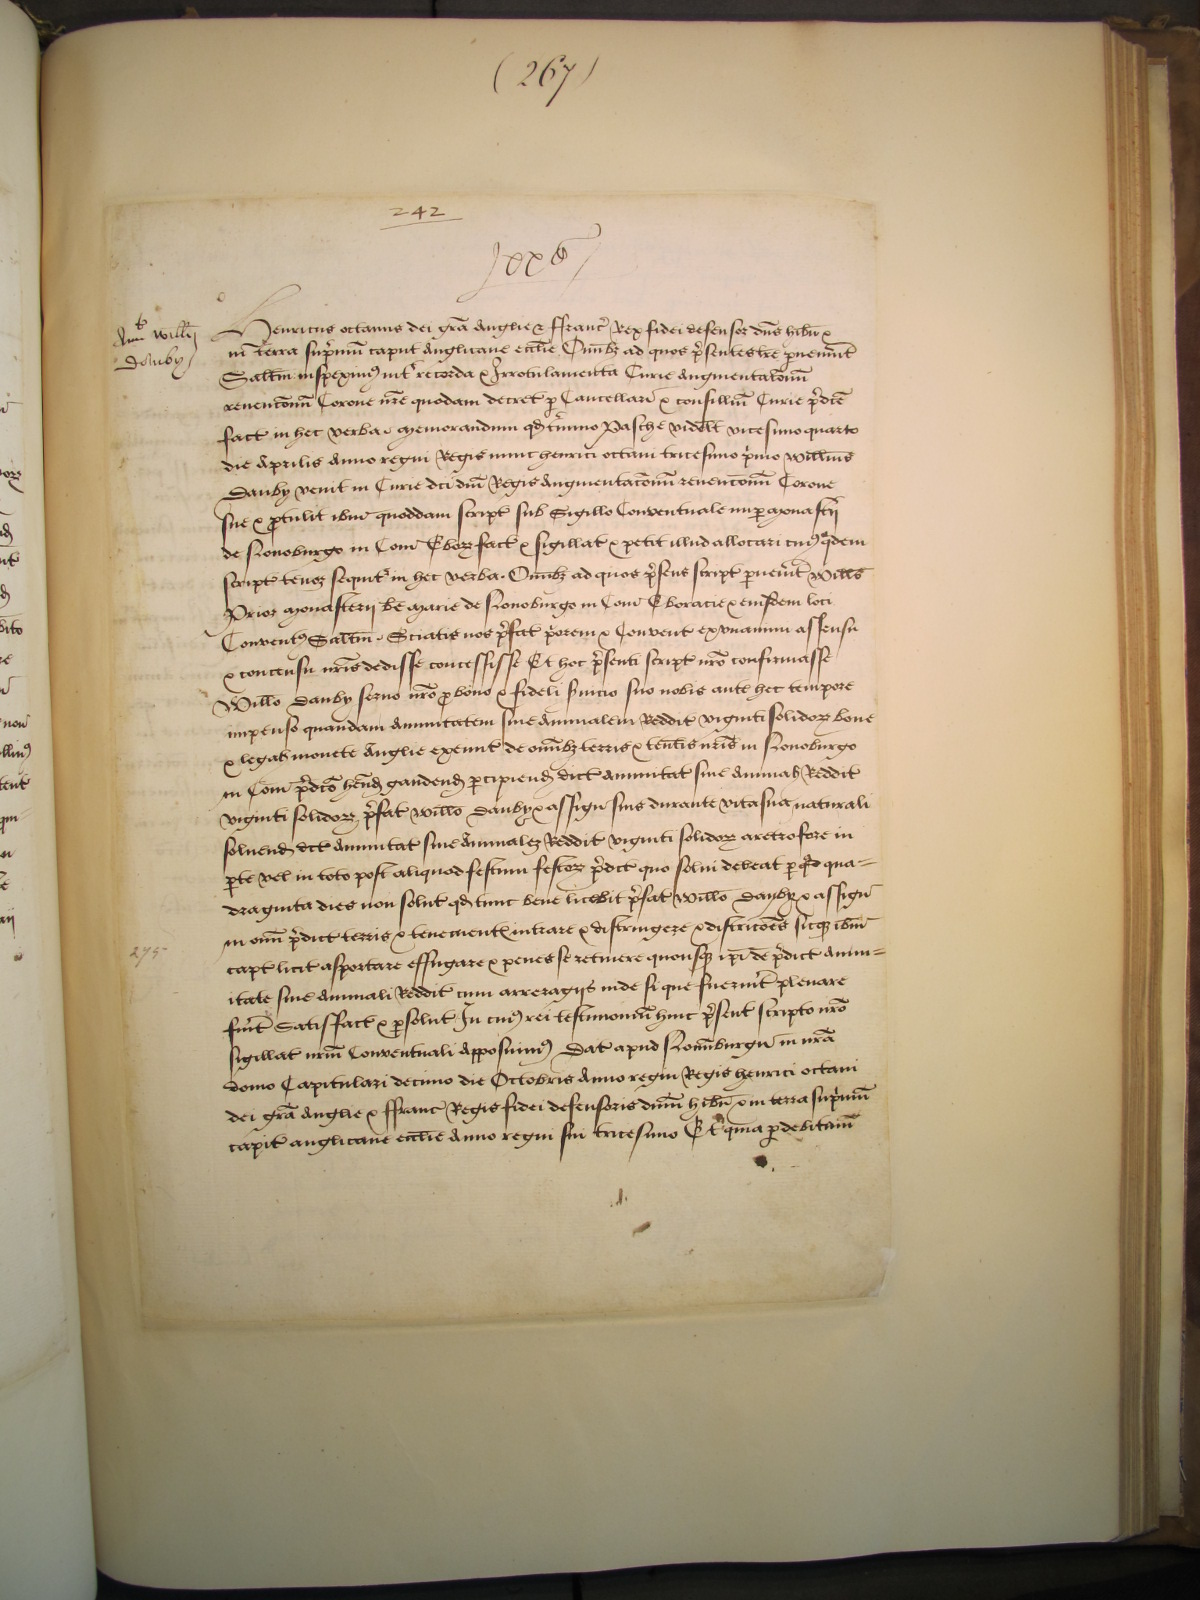 (267)
242
Ann Willi
Danby
Henricus octavus dei grã Anglie & ffranc̃ Rex fidei defensor dñs hibñ &
in terra sup̃mũ caput Anglicane ecclie Om̃ibȝ ad quos p̃sentes tre pvenerint
Salt̃m inspexim⁹ int̃ recorda & Irrotulamenta Curie Augmentac̃onũ
revenc̃onũ Corone nr̃e quodam decret̃ p Cancellariũ & consilliũ Curie p̃dc̃e
fact in hec verba Memorandum qđ t̃mino Pasche videlt̃ vicesimo quarto
die Aprilis Anno regni Regis nunc henrici octavi tricesimo p̃mo Willm̃s
Danby venit in Curie dc̃i dñi Regis Augmentac̃onũ revenc̃onũ Corone
sue & ptulit ibm̃ quoddam script̃ sub Sigillo Conventuale nup Monastrii
de Nonoburgo in Com̃ Eboȝ fact & sigillat & petit illud allocari cui⁹ qđem
script̃ tenor sequit̃ in hec verba. Om̃ibȝ ad quos p̃sens script̃ pvenerit̃ Willm̃s
Prior Monasterii bẽ Marie de Nonoburgo in Com̃ Eboracie & eiusdem loci
Convent⁹ Salt̃m. Sciatis nos p̃fat p̃orem & Convent ex unanimi assensu
& concensu nr̃is dedisse concessisse Et hoc p̃senti script̃ nr̃o confirmasse
Willo Danby servo nr̃o p bono & fideli s̃vicio suo nobis ante hec tempore
impenso quandam Annuitatem sive Annualem Reddit̃ viginti solidoȝ bone
& legal monete Anglie exeunt̃ de om̃ibȝ terris & tent̃is nr̃is in Nonoburgo
in Com̃ p̃dc̃o hend gaudend pcipiend dict̃ Annuitat̃ sive Annual Reddit̃
viginti solidoȝ p̃fat Willo Danby & assign̄ suis durante vita sua naturali
solvend dc̃t Annuitat̃ sive Annualeȝ Reddit̃ viginti solidoȝ aretro fore in
pte vel in toto post aliquod festum festoȝ p̃dict̃ quo solvi debeat p qđ qua=
draginta dies non solut̃ qđ tunc bene licebit p̃fat Willo Danby & assign̄
in om̃i p̃dict̃ terris & tenement̃ intrare & distringere & districc̃ões sicqȝ ibm̃
capt̃ licit asportare effugare & penes se retinere quousqȝ ip̃i de p̃dict̃ Annu=
itate sive Annuali Reddit̃ cum arreragiis inde si que fuerint̃ plenare
fuit̃ Satisfact & psolut In cui⁹ rei testimoniũ huic p̃sent̃ scripto nr̃o
sigillat nr̃m Conventuali Apposuim⁹ Dat apud Nonn̄burgũ in nr̃a
domo Capitulari decimo die Octobris Anno regni Regis henrici octavi
dei grã Anglie & ffranc̃ Regis fidei defensoris dñi hibñ & in terra sup̃mũ
capit anglicane ecclie Anno regni sui tricesimo Et quia p debitam
275